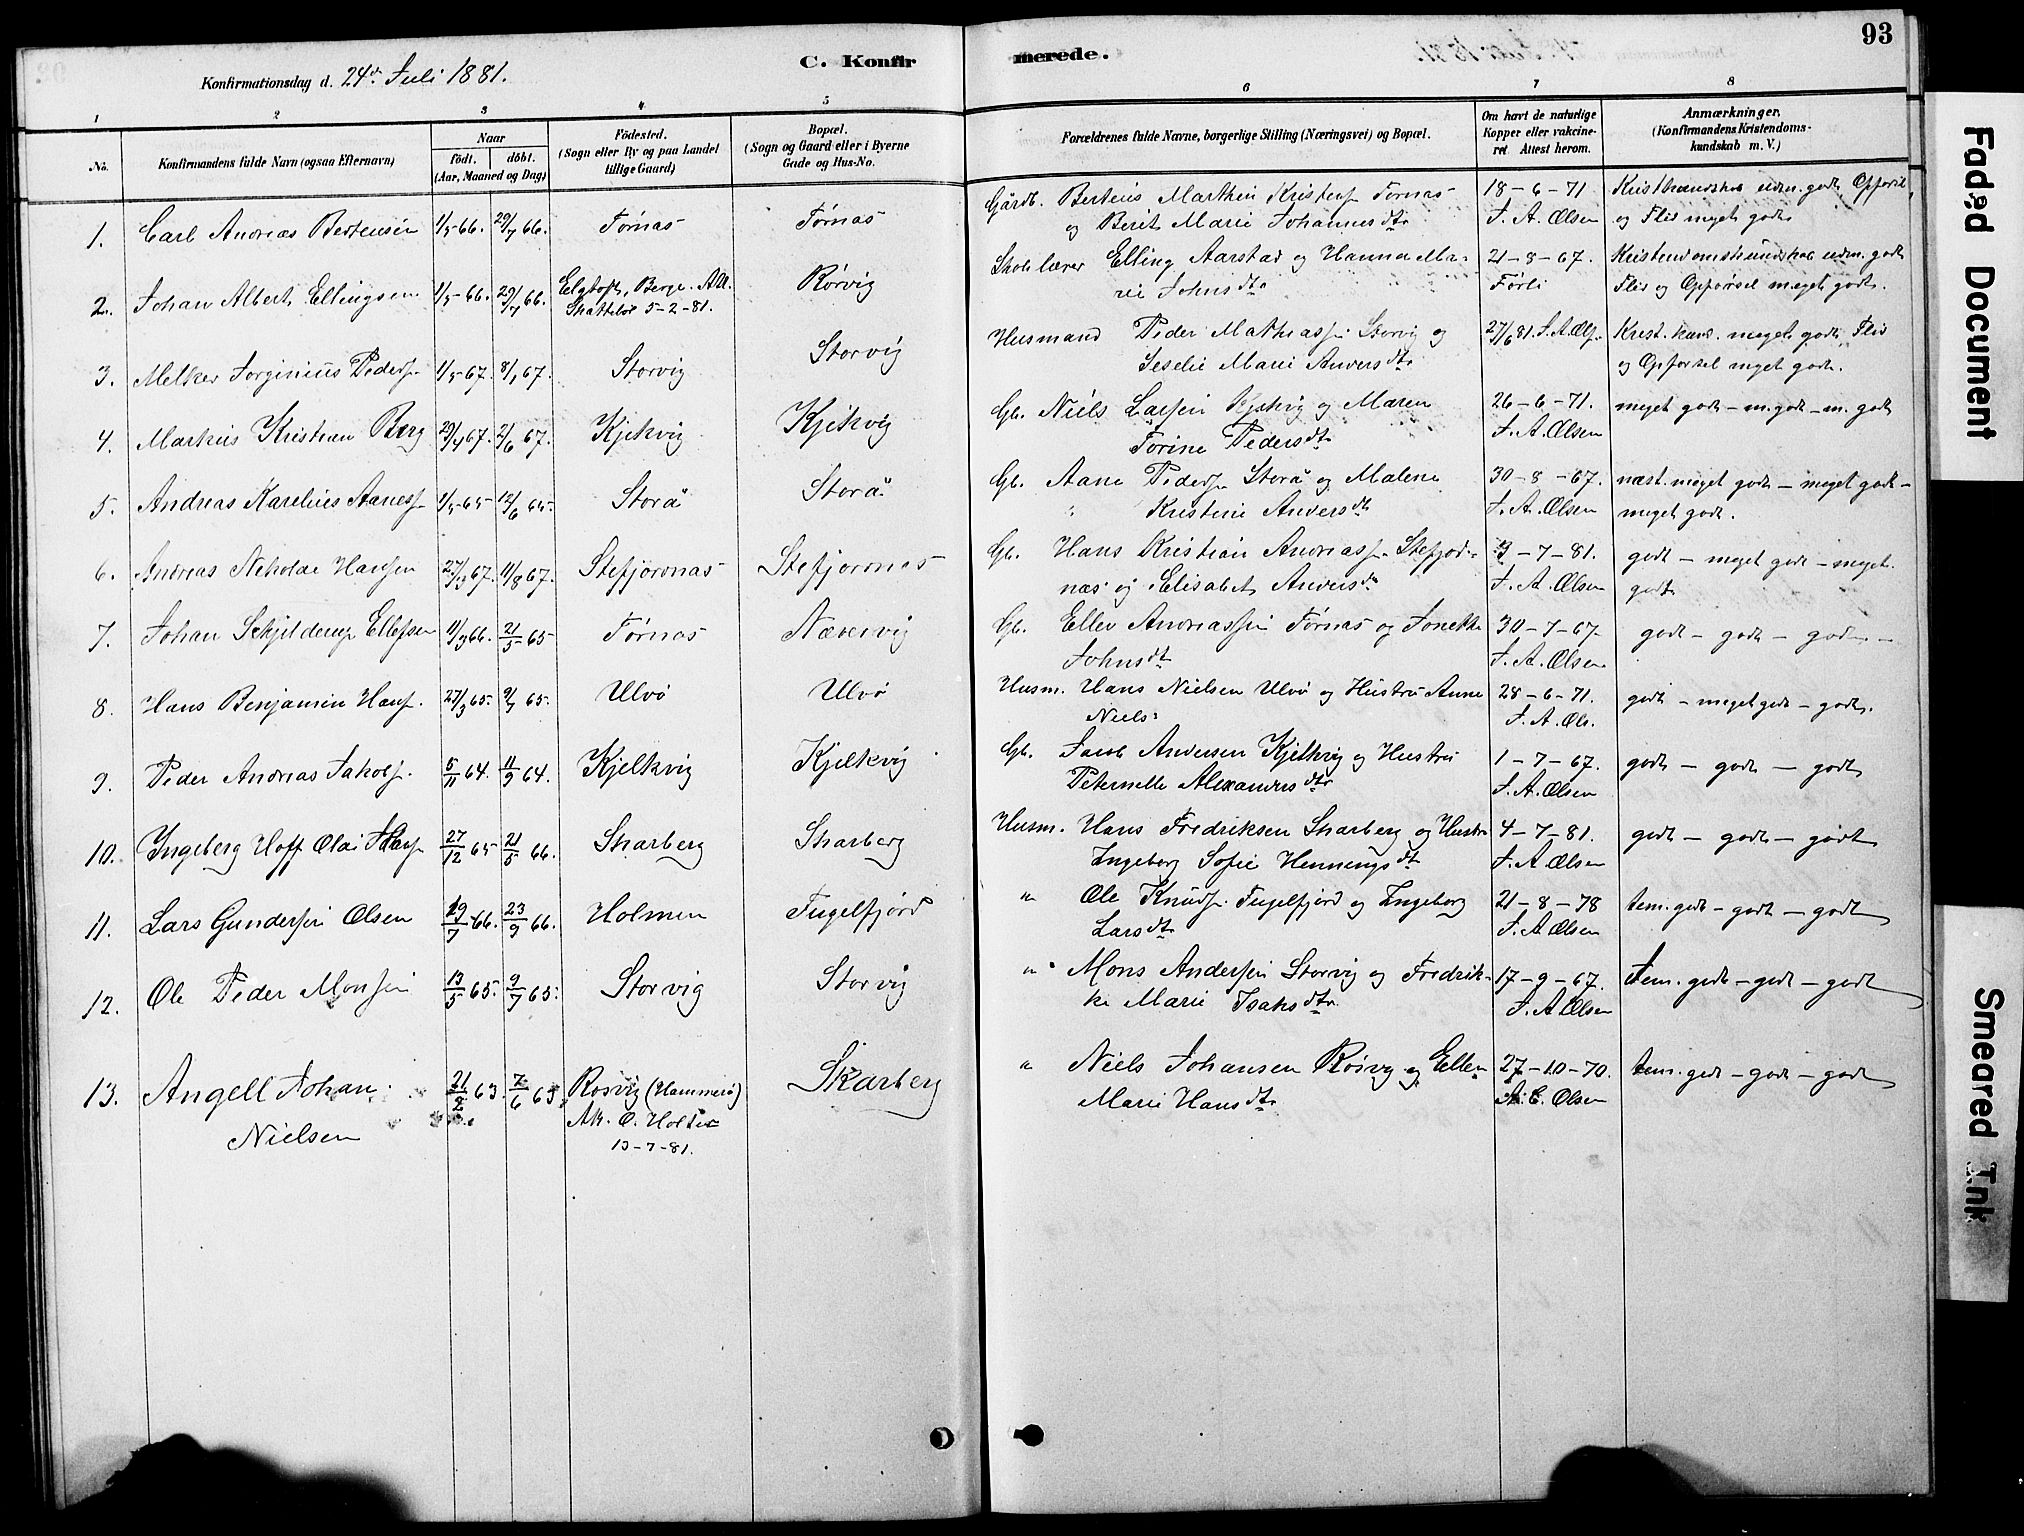 93
C. Konfirmerede.
Konfirmationsdag d. 24de Juli 1881.
1 2 3 4 5 6 7 8
No.
Konfirmandens fulde Navn (ogsaa Efternavn)
Naar
födt. döbt.
(Aar, Maaned og Dag)
Födested.
(Sogn eller By og paa Landet
tillige Gaard)
Bopæl.
(Sogn og Gaard eller i Byerne
Gade og Hus-No.
Forældrenes fulde Navne, borgerlige Stilling (Næringsvei) og Bopæl.
Om havt de naturlige
Kopper eller vakcine-
ret. Attest herom.
Anmærkninger.
(Konfirmandens Kristendoms-
kundskab m. V.)
1. Carl Andreas Bertensen 1/5 66. 29/7 66. Tørnæs Tørnæs Gårdb. Berteus Marthin Kristens. Tørnæs 18-6-71
og Berit Marie Johannesdtr J. A. Olsen og Flid meget godt
2. Johan Albert Ellingsen 1/5 66. 29/7 66. Rørvig Skolelærer Elling Aarstad og Hanna Ma- 21-8-67. Kristendomskundskab udm. godt
5-2-81. rie Johnsdtr Førli Flid og Opførsel meget godt.
3. Melker Jorginius Peders. 1/5 67. 8/1 67. Storvig Storvig Husmand Peder Mathiass. Storvig og 27/6 81. J. A. Ols. Krist. kund. meget godt, Flid
Seselie Marie Andersdtr og Opførsel meget godt.
4. Markus Kristian Berg 29/4 67. 2/6 67. Kjelkvig Kjelkvig Gb. Niels Larsen Kjelkvig og Maren 26-6-71. meget godt - m. godt - m. godt
Torine Pedersdtr J. A. Olsen
5. Andreas Karelius Aaness. 1/5 65 12/6 65. Storå Storå Gb. Aane Peders. Storå og Malene 30-8-67. næst. meget godt - meget godt -
Kristine Andersdtr J. A. Olsen meget godt.
6. Andreas Neholde Hansen 27/3 67. 11/8 67. Stefjordnæs Stefjordnæs Gb. Hans Kristian Andreass. Stefjord- 9-7-81. godt - meget godt - meget
næs og Elisabet Andersdtr J. A. Olsen godt
7. Johan Schjelderup Ellefsen 11/3 66. 21/5 65 Tørnæs Nævervig Gb. Ellev Andreassen Tørnæs og Jonette 30-7-67. godt - godt - godt -
Johnsdtr J. A. Olsen
8. Hans Benjamin Hans. 27/3 65. 9/7 65. Ulvø Ulvø Husm. Hans Nielsen Ulvø og Hustru Anne 28-6-71. godt - meget godt - godt.
Niels: J. A. Ols.
9. Peder Andreas Jakobs. 5/11 64. 11/9 64. Kjelkvig Kjelkvig Gb. Jacob Andersen Kjelkvig og Hustru 1-7-67. godt - godt - godt
Peternelle Alexandersdtr J. A. Olsen
10. Ingeberg Hoff Olai Hans. 27/12 65 21/5 66. Skarberg Skarberg Husm. Hans Fredriksen Skarberg og Hustru 4-7-81. godt - godt - godt
Ingeborg Sofie Henningsdtr J. A. Olsen
11. Lars Gundersen Olsen 19/7 66. 23/9 66. Holmen Fugelfjord " Ole Knuds. Fugelfjord og Ingeborg 21-8-78 tem. godt - godt - godt
Larsdtr J. A. Olsen
12. Ole Peder Monsen 13/5 65. 9/7 65. Storvig Storvig " Mons Andersen Storvig og Fredrik- 17-9-67. tem. godt - godt - godt
ke Marie Isaksdtr. J. A. Olsen
13. Angell Johan 21/2 63. 7/6 63. Rosvig (Hammerø) Skarberg " Niels Johansen Røsvig og Ellen 27-10-70. tem. godt - godt - godt
Nielsen Att. O. Holter Marie Hansdtr A. E. Olsen
13-7-81.
Faded Document
Smeared Ink